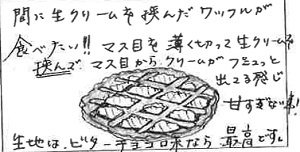 間に生クリームを挟んだワッフルが
食べたい!! マス目を薄く切って生クリームを
挟んで、マス目からクリームがブニュっと
出てる感じ
甘すぎない事!
生地は、ビターチョコ味なら最高です。